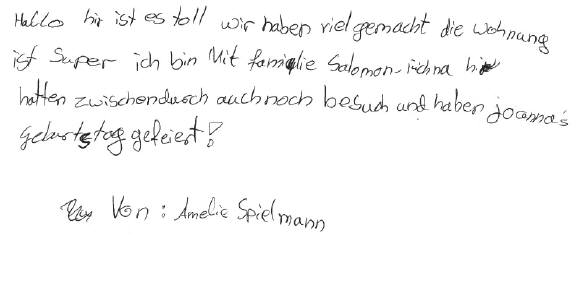 Hallo hir ist es toll wir haben viel gemacht die Wohnung
ist Super ich bin Mit famielie Salomon-
hatten zwischendurch auch noch besuch und haben joanna's
Geburtstag gefeiert!
Von: Amelie Spielmann